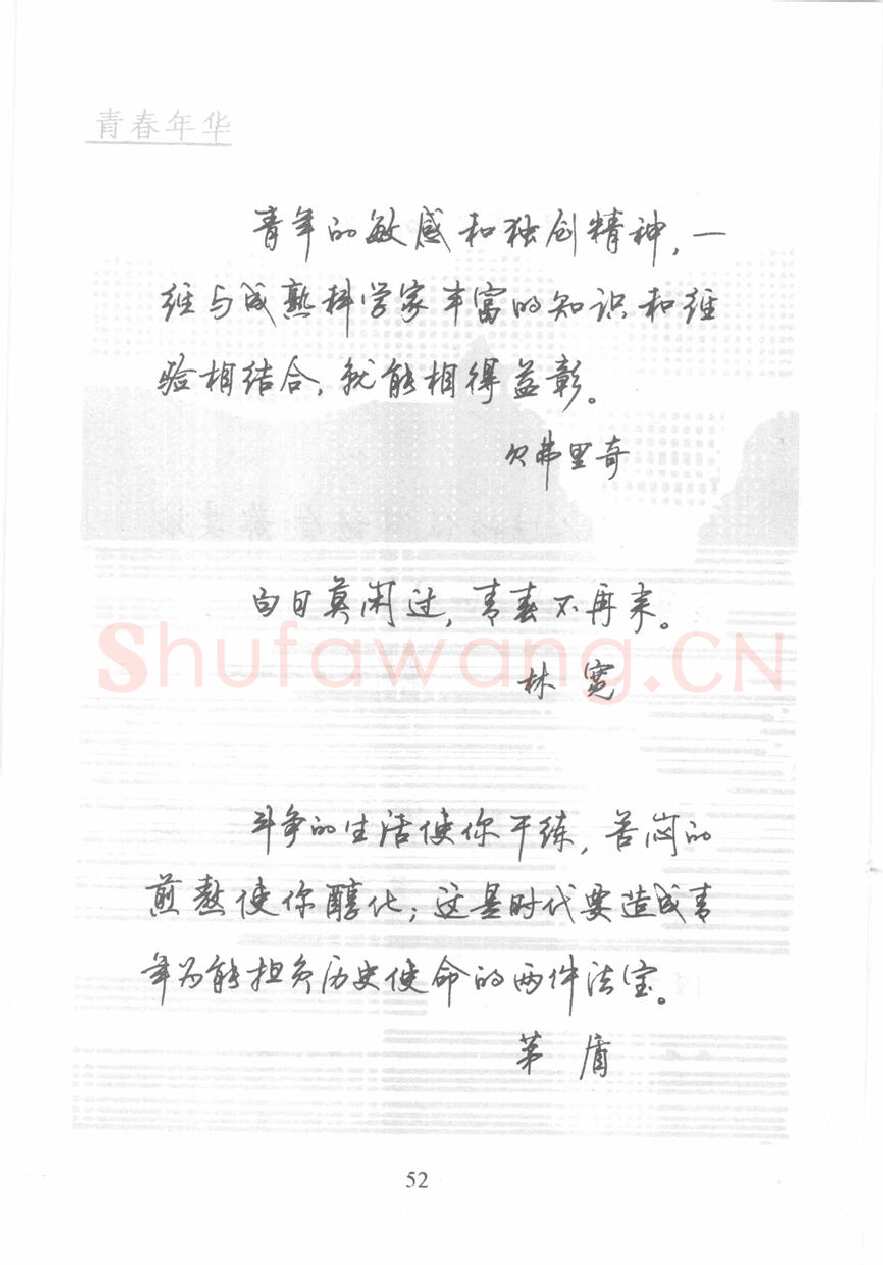 青春年华
青年的敏感和独创精神，一
经与成熟科学家丰富的知识和经
验相结合，就能相得益彰。
贝弗里奇
白日莫闲过，青春不再来。
Shufawang.CN
林 宽
斗争的生活使你干练，苦闷的
煎熬使你醇化；这是时代要造成青
年为能担负历史使命的两件法宝。
茅 盾
52